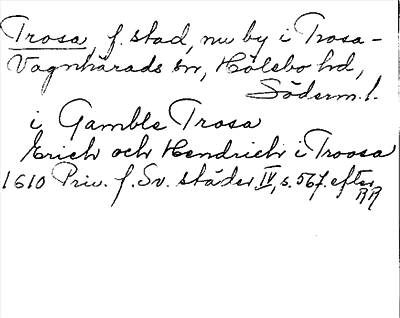 Trosa, f. stad, nu by i Trosa-
Vagnhärads sn, Hölebo hd,
Söderm. l.
i Gamble Trosa
Erich och Hendrich i Troosa
1610 Priv. f. Sv. städer IV, s. 567. efter
RA